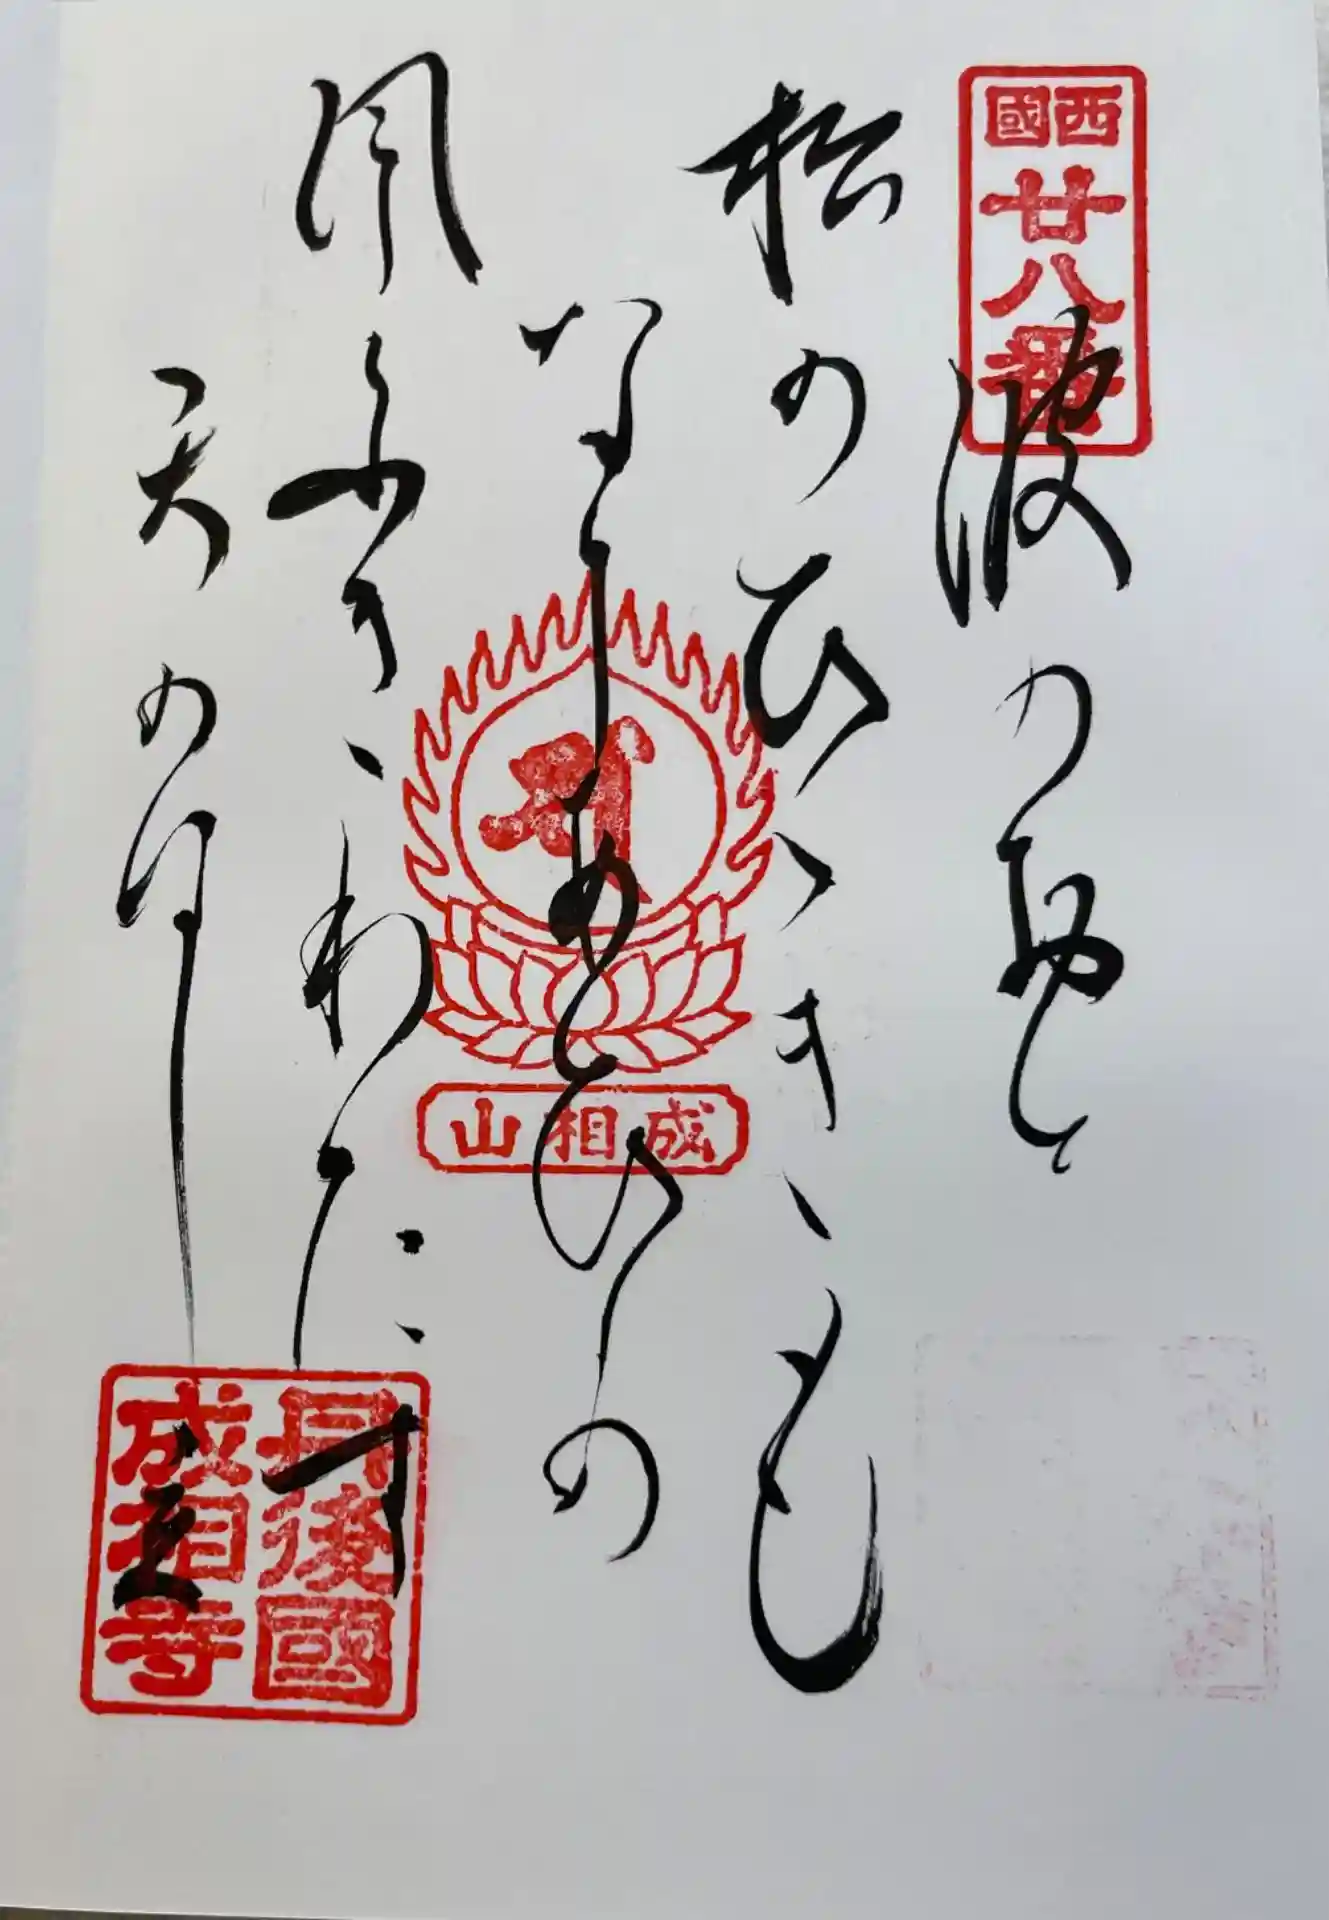 西國
廿八番
波の音
松のひゝきも
成相の
風ふきわたす
天の橋立
成相山
丹後國
成相寺